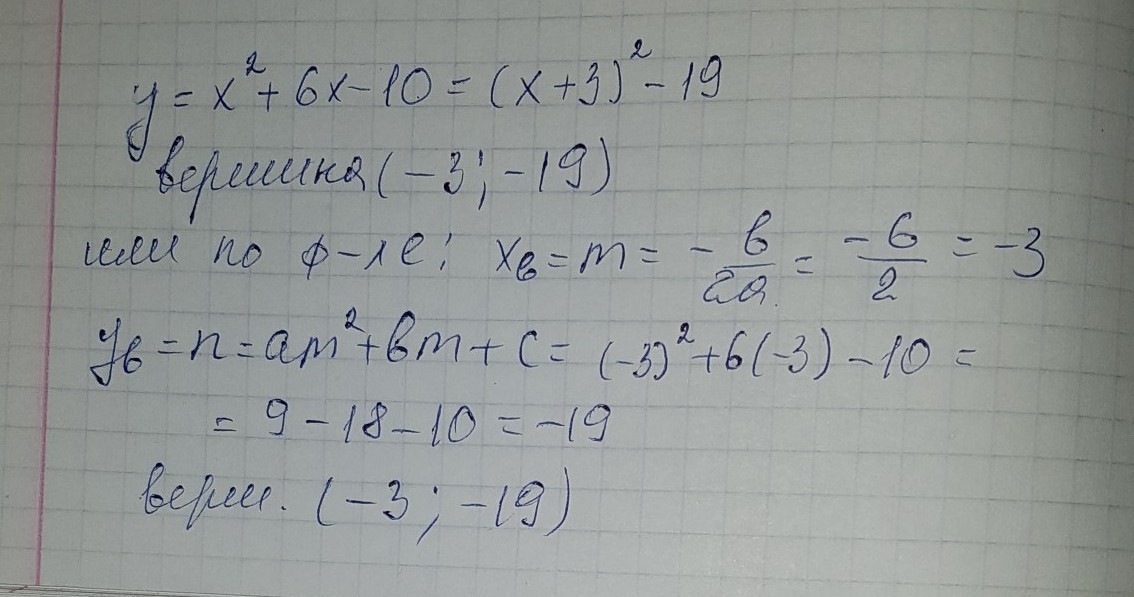 y = x² + 6x - 10 = (x + 3)² - 19
вершина (-3; -19)
или по ф-ле: xв = m = - в/2а = -6/2 = -3
yв = n = am² + вm + c = (-3)² + 6(-3) - 10 =
= 9 - 18 - 10 = -19
верш. (-3; -19)